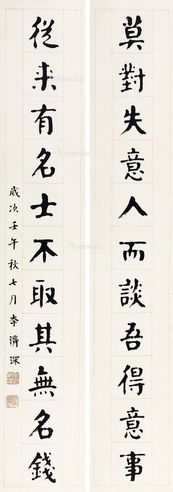 莫對失意人而談吾得意事
從来有名士不取其無名錢
歲次壬午秋七月李濟深